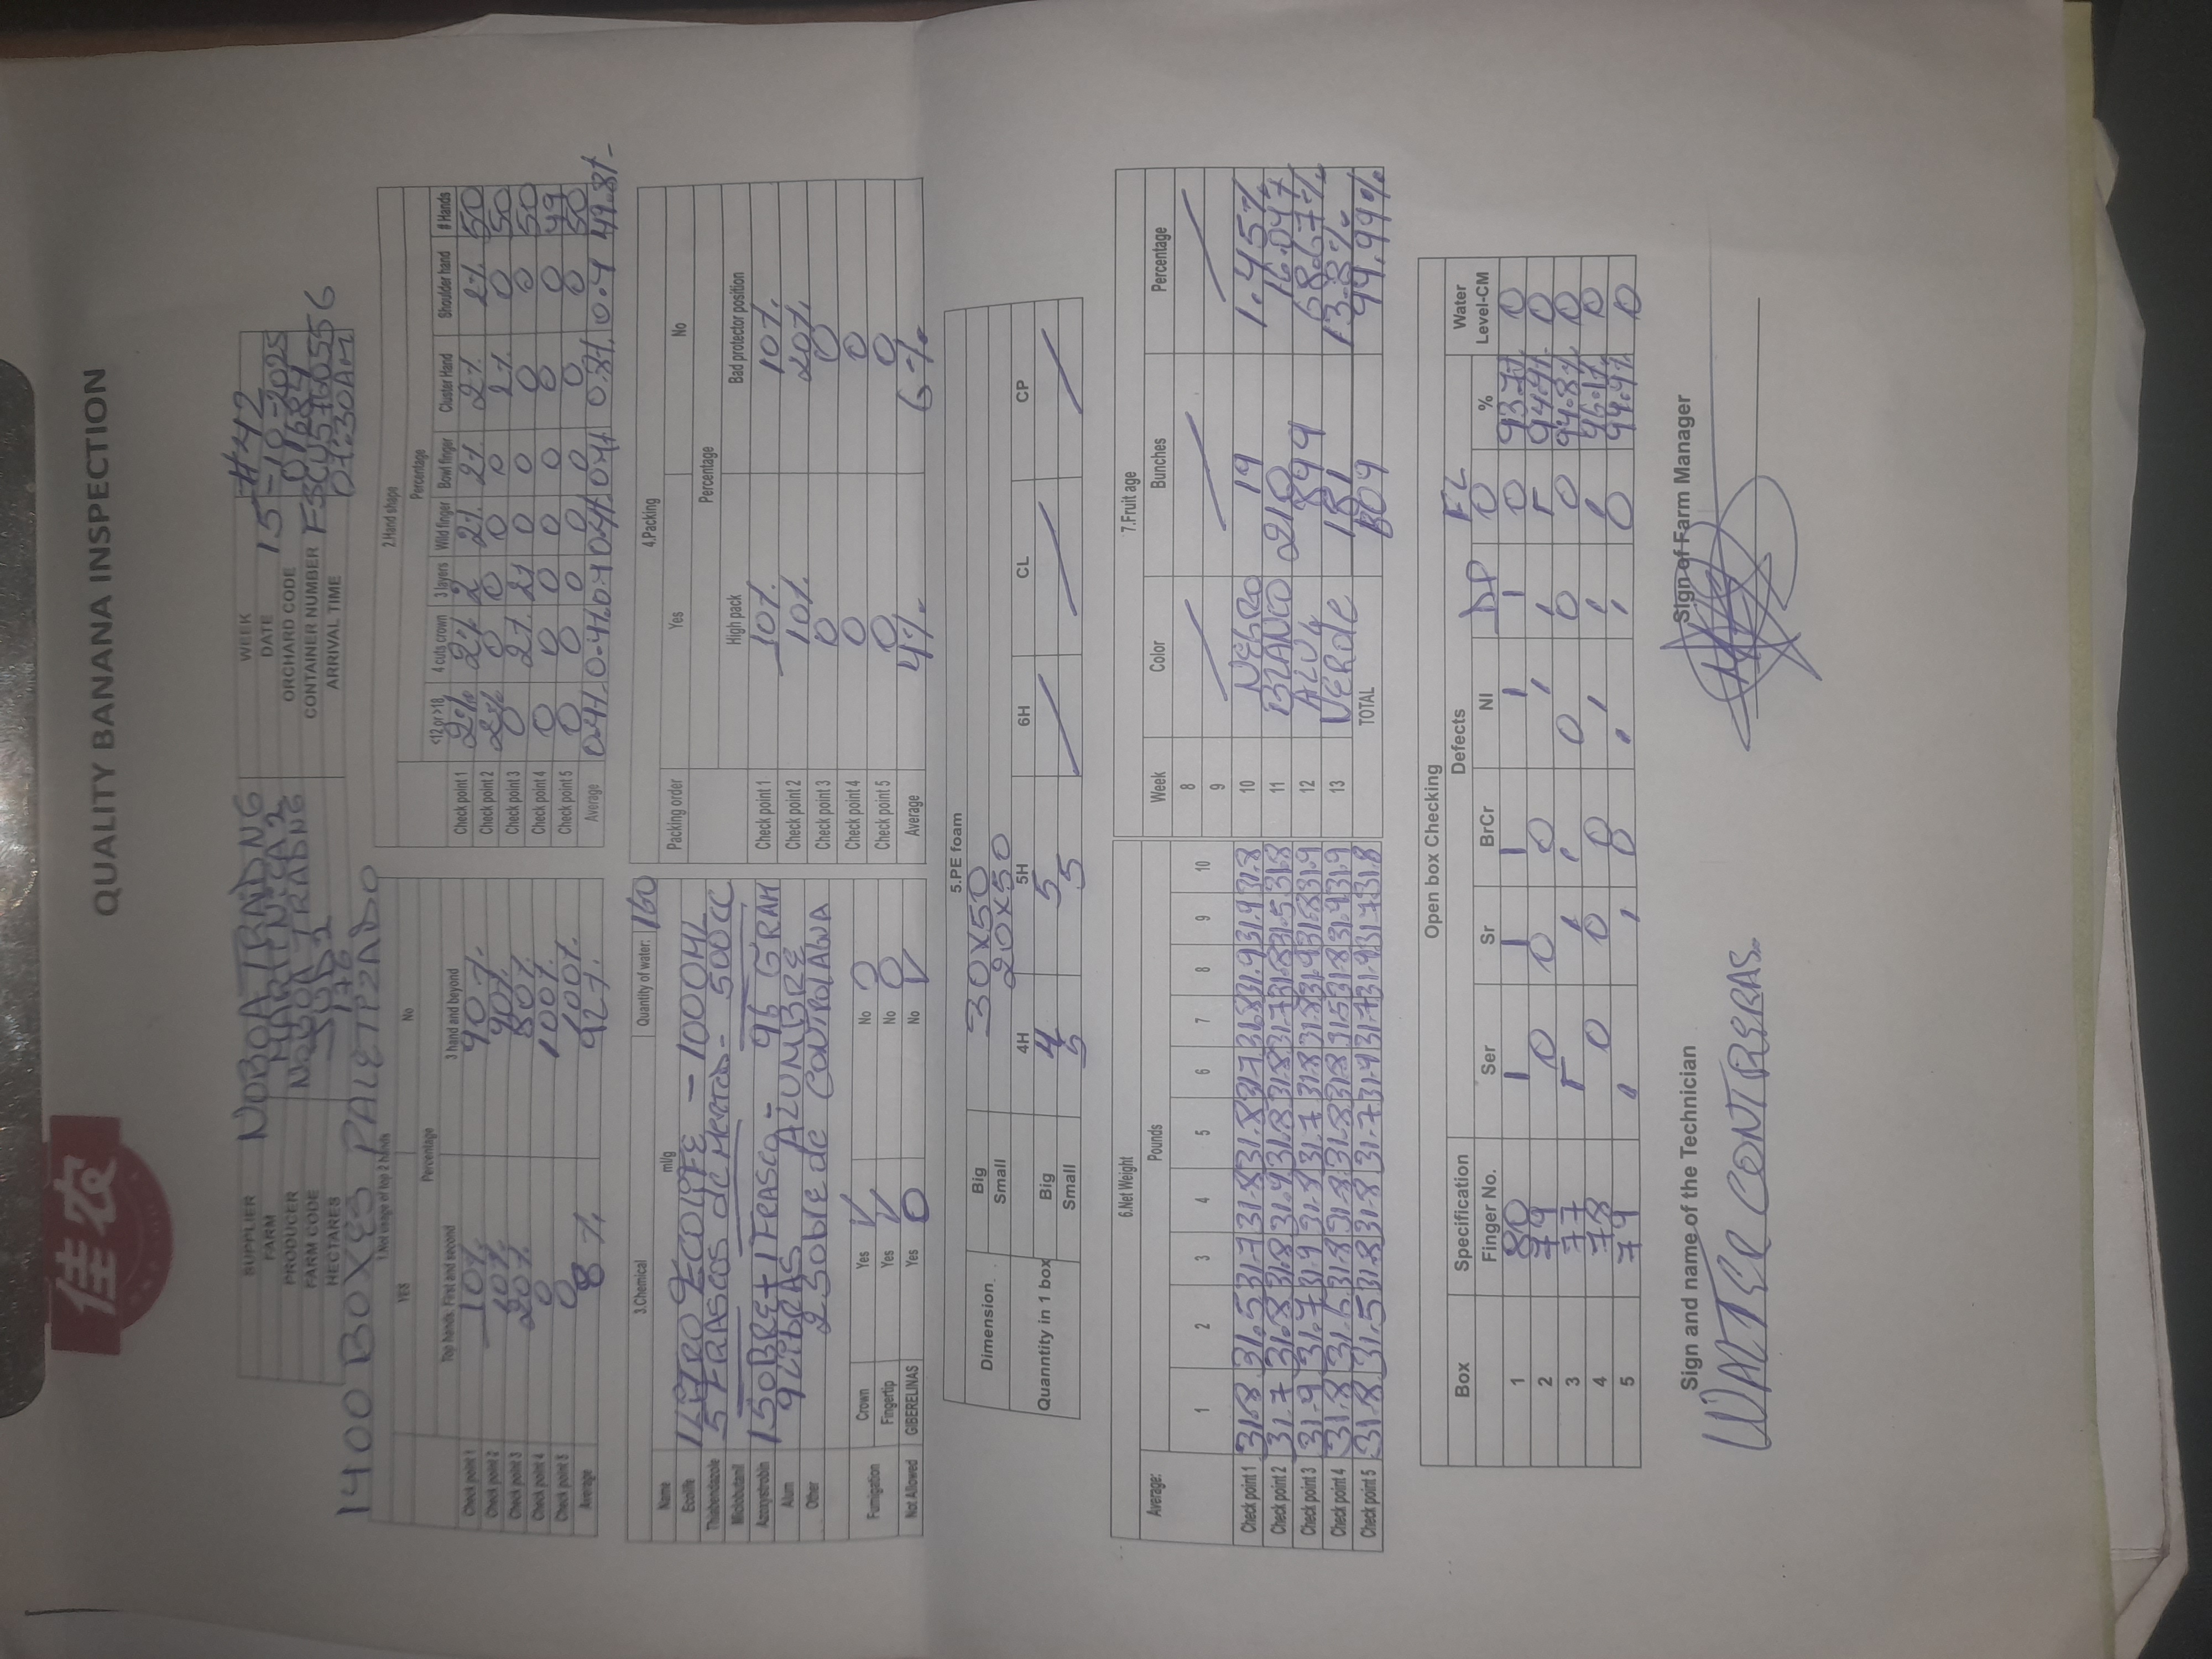 佳农
QUALITY BANANA INSPECTION
SUPPLIER NOBOA TRAIDNG WEEK #42
FARM MARTINICA 2 DATE 15-10-2025
PRODUCER NOBOA TRADNG ORCHARD CODE
FARM CODE CONTAINER NUMBER FSCU5760556
HECTARES 176 ARRIVAL TIME 07:30AM
1400 BOXES PALETIZADO
1.Not usage of top 2 hands
YES No
Percentage
Top hands. First and second 3 hand and beyond
Check point 1 10% 90%
Check point 2 20% 90%
Check point 3 20% 80%
Check point 4 0 100%
Check point 5 0 100%
Average 8% 92%
2.Hand shape
Percentage
<12 or >18 4 cuts crown 3 layers Wild finger Bowl finger Cluster Hand Shoulder hand # Hands
Check point 1 2% 2% 2 2% 2% 2% 2% 50
Check point 2 2% 0 0 0 0 2% 0 50
Check point 3 0 2% 2% 0 0 0 0 50
Check point 4 0 0 0 0 0 0 0 49
Check point 5 0 0 0 0 0 0 0 50
Average 0.4% 0.4% 0.4 0.4% 0.4% 0.8% 0.4 49.8%
3.Chemical Quantity of water: 160
Name ml/g
Ecolife 1 LITRO ECOLIFE - 1000ML
Thiabendazole 5 FRASCOS de MERTCD - 500CC
Miclobutanil
Azoxystrobin 1 SOBRE + 1 FRASCO - 96 GRAM
Alum 9 LIBRAS ALUMBRE
Other 2 Sobre de CONTROL AGUA
Fumigation Crown Yes ✓ No 0
Fingertip Yes ✓ No 0
Not Allowed GIBERELINAS Yes 0 No ✓
4.Packing
Packing order Yes No
Percentage
High pack Bad protector position
Check point 1 10% 10%
Check point 2 10% 20%
Check point 3 0 0
Check point 4 0 0
Check point 5 0 0
Average 4% 6%
5.PE foam
Dimension Big 30X50
Small 20X50
4H 5H 6H CL CP
Quanntity in 1 box Big 4 5
Small 5 5
6.Net Weight
Average: Pounds
1 2 3 4 5 6 7 8 9 10
Check point 1 31.8 31.5 31.7 31.8 31.8 31.7 31.8 31.9 31.9 31.8
Check point 2 31.7 31.8 31.8 31.9 31.8 31.8 31.7 31.8 31.5 31.8
Check point 3 31.9 31.7 31.9 31.8 31.7 31.8 31.8 31.9 31.8 31.9
Check point 4 31.8 31.6 31.8 31.8 31.8 31.8 31.5 31.8 31.9 31.9
Check point 5 31.8 31.5 31.8 31.8 31.7 31.9 31.7 31.9 31.7 31.8
7.Fruit age
Week Color Bunches Percentage
8
9
10 NEGRO 19 1.45%
11 BLANCO 210 16.04%
12 AZUL 899 68.67%
13 VERDE 181 13.8%
TOTAL 1309 99.99%
Open box Checking
Box Specification Defects FL Water
Finger No. Ser Sr BrCr NI DP 0 % Level-CM
1 80 1 1 1 1 1 0 93.7% 0
2 79 0 0 0 1 1 94.9% 0
3 77 1 1 0 0 0 94.8% 0
4 78 0 0 0 1 1 1 96.1% 0
5 79 1 1 0 1 1 0 94.9% 0
Sign and name of the Technician Sign of Farm Manager
WALTER CONTRERAS